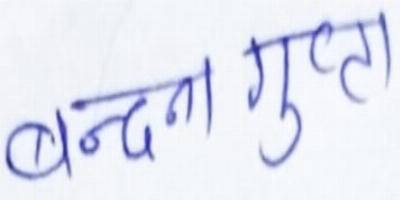 बन्दना गुप्ता